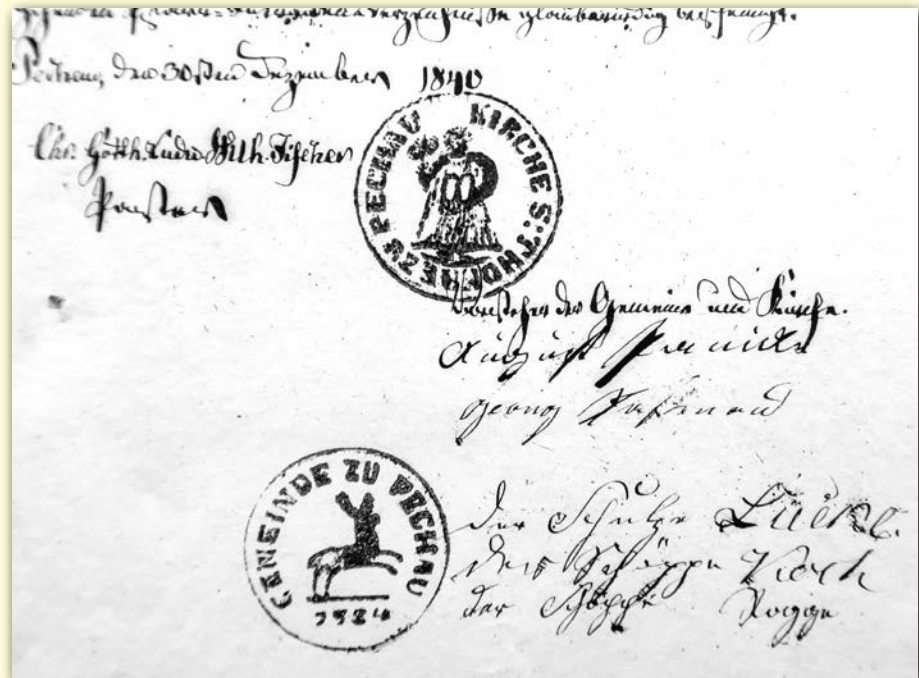 glaubwürdig bescheinigt.
Pechau, den 30sten Dezember 1840
Chr. Gotth. Ludw. Wilh. Fischer
Pastor
KIRCHE S: THOMAE ZU PECHAU
Vorsteher der Gemeine und Kirche.
August
Georg
GEMEINDE ZU PECHAU
1584
der Schulze Lücke
der Schöppe Koch
der Schöppe Rogge